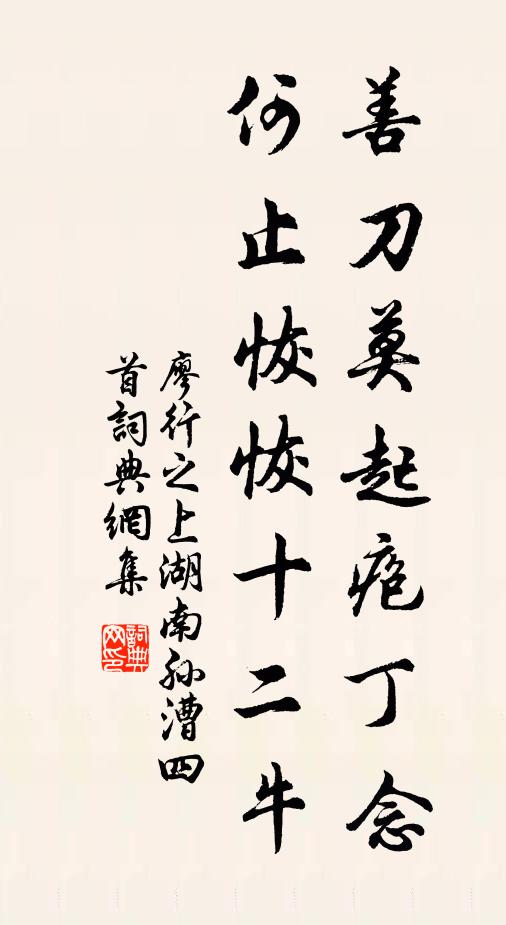 善刀莫起疱丁念
何止恢恢十二牛
廖行之上湖南孙漕四
首詞典網集
詞典
网印